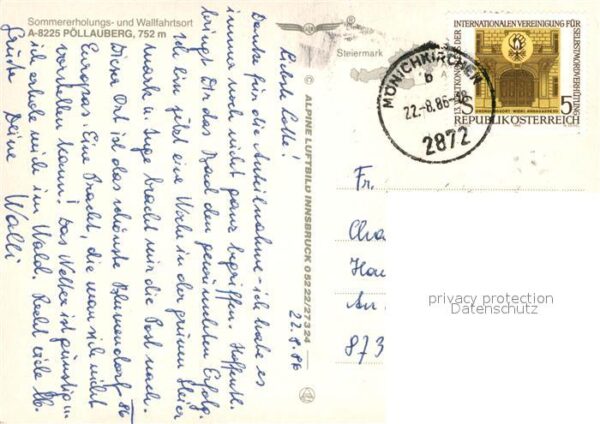 Sommererholungs- und Wallfahrtsort
A-8225 PÖLLAUBERG, 752 m
Steiermark
Liebste Lotte!
Danke für die Anteilnahme - ich habe es
immer noch nicht ganz begriffen. Hoffentl.
bringt Dir das Bad den gewünschten Erfolg.
Ich bin jetzt eine Woche in der grünen Steier
mark u. Inge bracht mir die Post nach.
Dieser Ort ist das schönste Blumendorf 86
Europas. Eine Pracht, die man sich nicht
vorstellen kann! Das Wetter ist günstig u.
ich erhole mich im Wald. Recht viele lb.
Grüße Deine Walli
22.8.86
© ALPINE LUFTBILD INNSBRUCK 05222/27324
MÖNICHKIRCHEN
b
22.-8.86-18
2872
13. KONGRESS DER
INTERNATIONALEN VEREINIGUNG FÜR
SELBSTMORDVERHÜTUNG
S 5
REPUBLIK ÖSTERREICH
Fr.
Cha
Hau
An
873
privacy protection
Datenschutz